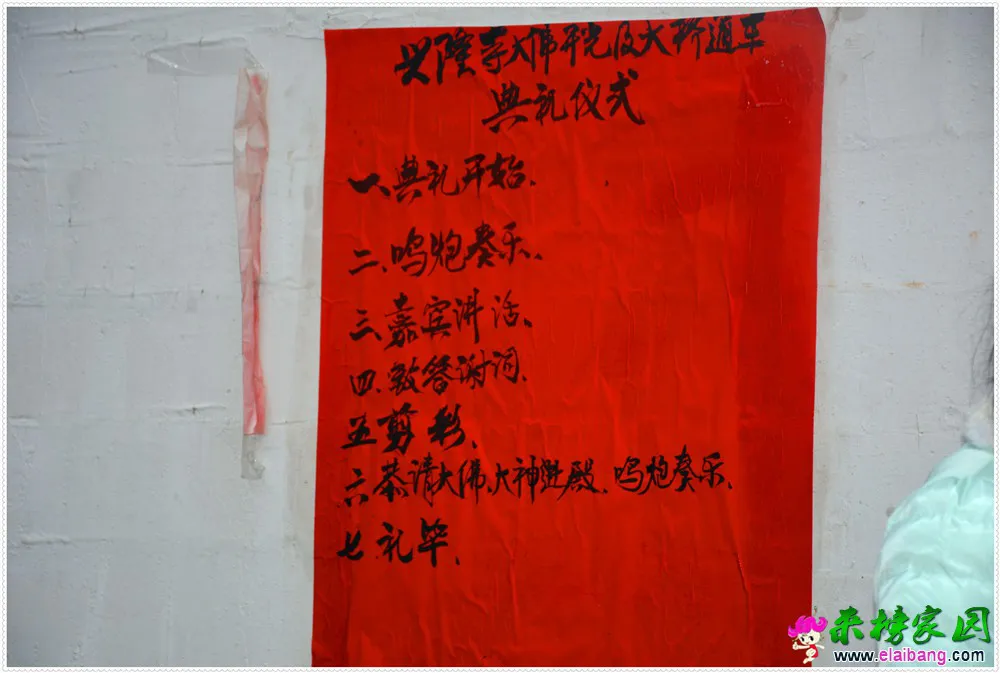 兴隆寺大佛开光及大桥通车
典礼仪式
一、典礼开始、
二、鸣炮奏乐、
三、嘉宾讲话、
四、致答谢词、
五剪彩、
六恭请大佛、大神进殿、鸣炮奏乐、
七、礼毕、
来榜家园
www.elaibang.com